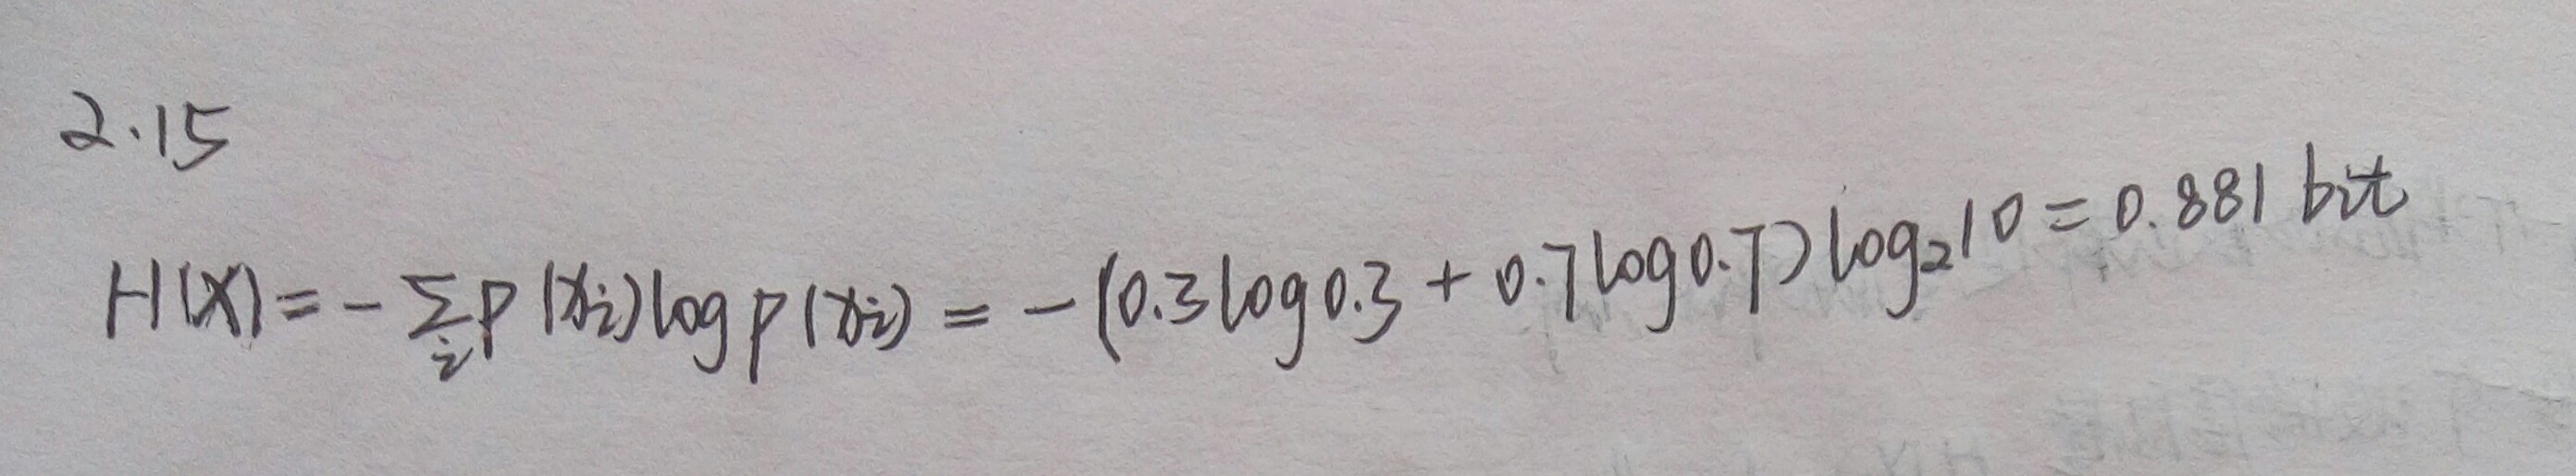 2.15
H(X) = - ∑_i P(x_i) log P(x_i) = - (0.3 log 0.3 + 0.7 log 0.7) log₂10 = 0.881 bit